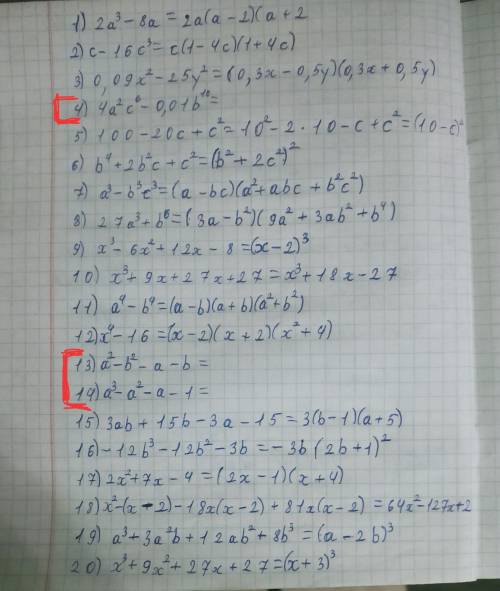 1) 2a³ - 8a = 2a(a - 2)(a + 2
2) c - 16c³ = c(1 - 4c)(1 + 4c)
3) 0,09x² - 25y² = (0,3x - 0,5y)(0,3x + 0,5y)
4) 4a²c⁶ - 0,01b¹⁰ =
5) 100 - 20c + c² = 10² - 2 · 10 - c + c² = (10 - c)²
6) b⁴ + 2b²c + c² = (b² + 2c²)²
7) a³ - b³c³ = (a - bc)(a² + abc + b²c²)
8) 27a³ + b⁶ = (3a - b²)(9a² + 3ab² + b⁴)
9) x³ - 6x² + 12x - 8 = (x - 2)³
10) x³ + 9x + 27x + 27 = x³ + 18x - 27
11) a⁴ - b⁴ = (a - b)(a + b)(a² + b²)
12) x⁴ - 16 = (x - 2)(x + 2)(x² + 4)
13) a² - b² - a - b =
14) a³ - a² - a - 1 =
15) 3ab + 15b - 3a - 15 = 3(b - 1)(a + 5)
16) - 12b³ - 12b² - 3b = - 3b (2b + 1)²
17) 2x² + 7x - 4 = (2x - 1)(x + 4)
18) x² - (x - 2) - 18x(x - 2) + 81x(x - 2) = 64x² - 127x + 2
19) a³ + 3a²b + 12ab² + 8b³ = (a - 2b)³
20) x³ + 9x² + 27x + 27 = (x + 3)³